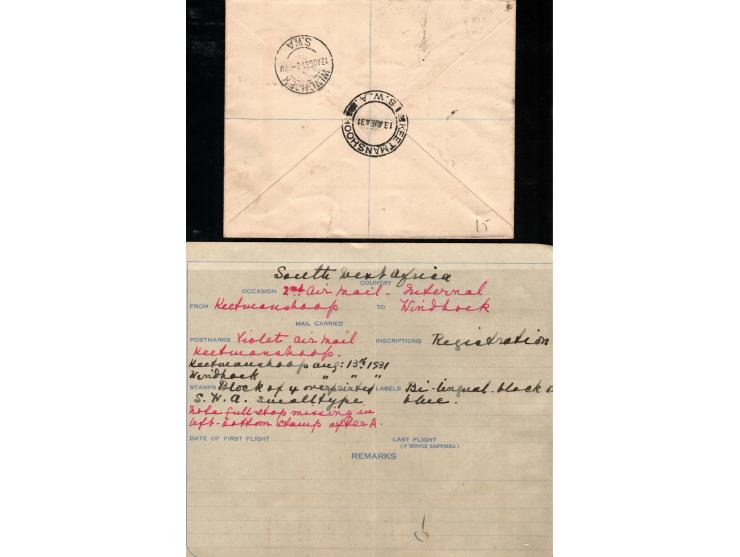 WINDHOEK
13 AUG 31
S.W.A
KEETMANSHOOP
S.W.A.
13 AUG 31
15
South West Africa
COUNTRY
OCCASION 2nd Air Mail - Internal
FROM Keetmanshoop TO Windhoek
MAIL CARRIED
POSTMARKS Violet air mail INSCRIPTIONS Registration
Keetmanshoop.
Keetmanshoop aug: 13th 1931
Windhoek " " "
STAMPS Block of 4 overprinted LABELS Bi-lingual. black on
S.W.A. small type blue.
note full-stop missing in
left-bottom stamp after A.
DATE OF FIRST FLIGHT LAST FLIGHT
(IF SERVICE SUSPENDED)
REMARKS